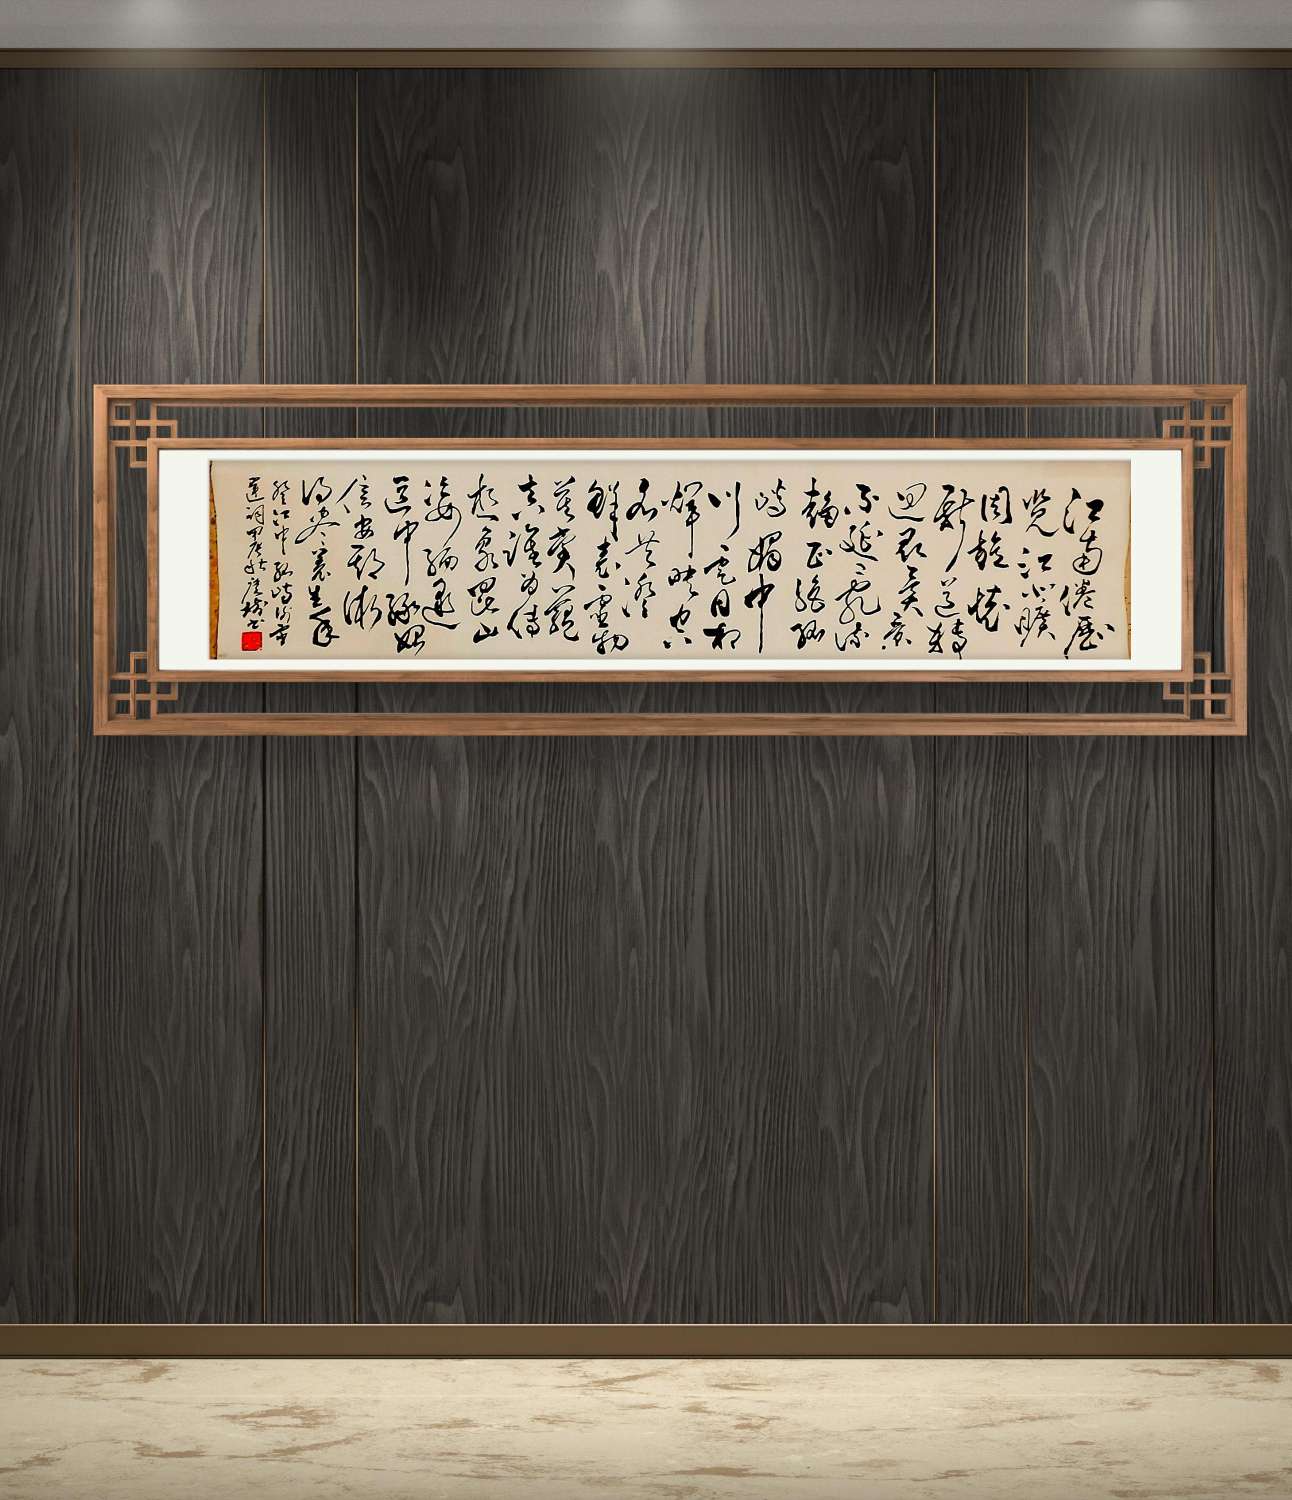 江南倦歷
覽江北曠
周旋懷
新道轉
迥尋異景
不延亂流
趨正絕孤
嶼媚中
川雲日相
輝映空
水共澄
鮮表靈物
莫賞蘊
真誰為傳
想象崑山
姿緬邈
區中緣始
信安期術
得盡養生年
登江中孤嶼謝靈
運詞甲辰秋書